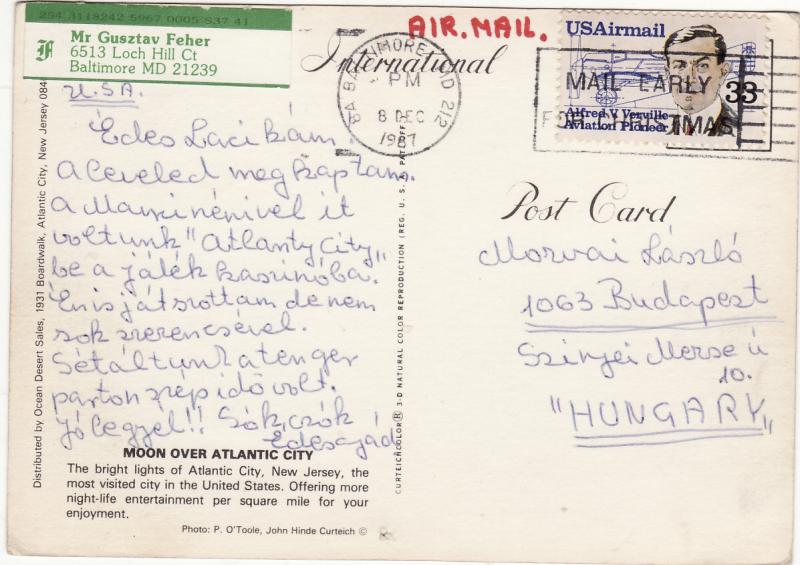 254 3118242 5967 0005 S37 41
Mr Gusztav Feher
6513 Loch Hill Ct
Baltimore MD 21239
U.SA.
Édes Lacikám
A leveled megkaptam.
a Mamrinénivel it
voltunk "Atlanty City"
be a játék kaszinóba.
Énis játszottam de nem
sok szerencsével.
Sétáltunk a tenger
parton szép idő volt.
Jó legyél!! Sók, csók
Édesapád
MOON OVER ATLANTIC CITY
The bright lights of Atlantic City, New Jersey, the
most visited city in the United States. Offering more
night-life entertainment per square mile for your
enjoyment.
Photo: P. O'Toole, John Hinde Curteich ©
Distributed by Ocean Desert Sales, 1931 Boardwalk, Atlantic City, New Jersey 084
CURTEICHCOLOR ® 3-D NATURAL COLOR REPRODUCTION (REG. U. S. A. PAT. OFF.
AIR. MAIL.
International
BALTIMORE, MD 212
PM
8 DEC
1987
USAirmail
MAIL EARLY
33
Alfred V. Verville
Aviation Pioneer
FOR CHRISTMAS
Post Card
Morvai László
1063 Budapest
Szinyei Merse ú
10.
"HUNGARY"